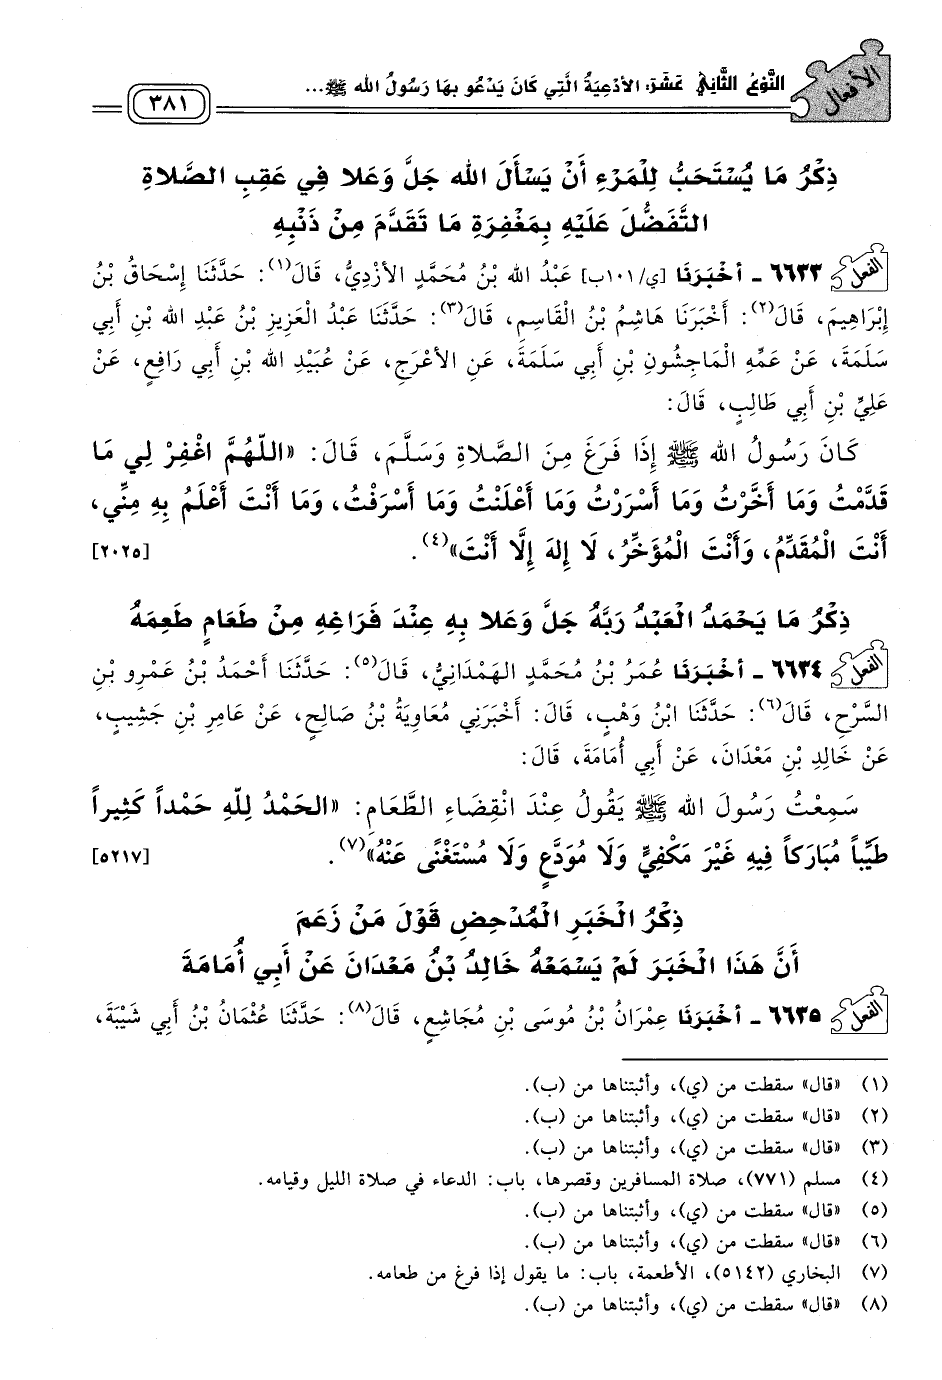 الأفعال
النَّوْعُ الثَّانِي عَشَرَ: الأَدْعِيَةُ الَّتِي كَانَ يَدْعُو بِهَا رَسُولُ الله ﷺ...
٣٨١
ذِكْرُ مَا يُسْتَحَبُّ لِلْمَرْءِ أَنْ يَسْأَلَ الله جَلَّ وَعَلا فِي عَقِبِ الصَّلاةِ
التَّفَضُّلَ عَلَيْهِ بِمَغْفِرَةِ مَا تَقَدَّمَ مِنْ ذَنْبِهِ
الفعل ٦٦٣٣ - أَخْبَرَنَا [ي/١٠١ب] عَبْدُ الله بْنُ مُحَمَّدٍ الأَزْدِيُّ، قَالَ(١): حَدَّثَنَا إِسْحَاقُ بْنُ
إِبْرَاهِيمَ، قَالَ(٢): أَخْبَرَنَا هَاشِمُ بْنُ الْقَاسِمِ، قَالَ(٣): حَدَّثَنَا عَبْدُ الْعَزِيزِ بْنُ عَبْدِ الله بْنِ أَبِي
سَلَمَةَ، عَنْ عَمِّهِ الْمَاجِشُونِ بْنِ أَبِي سَلَمَةَ، عَنِ الأَعْرَجِ، عَنْ عُبَيْدِ الله بْنِ أَبِي رَافِعٍ، عَنْ
عَلِيِّ بْنِ أَبِي طَالِبٍ، قَالَ:
كَانَ رَسُولُ الله ﷺ إِذَا فَرَغَ مِنَ الصَّلاةِ وَسَلَّمَ، قَالَ: «اللّهُمَّ اغْفِرْ لِي مَا
قَدَّمْتُ وَمَا أَخَّرْتُ وَمَا أَسْرَرْتُ وَمَا أَعْلَنْتُ وَمَا أَسْرَفْتُ، وَمَا أَنْتَ أَعْلَمُ بِهِ مِنِّي،
أَنْتَ الْمُقَدِّمُ، وَأَنْتَ الْمُؤَخِّرُ، لَا إِلهَ إِلَّا أَنْتَ»(٤). [٢٠٢٥]
ذِكْرُ مَا يَحْمَدُ الْعَبْدُ رَبَّهُ جَلَّ وَعَلا بِهِ عِنْدَ فَرَاغِهِ مِنْ طَعَامٍ طَعِمَهُ
الفعل ٦٦٣٤ - أَخْبَرَنَا عُمَرُ بْنُ مُحَمَّدٍ الهَمْدَانِيُّ، قَالَ(٥): حَدَّثَنَا أَحْمَدُ بْنُ عَمْرِو بْنِ
السَّرْحِ، قَالَ(٦): حَدَّثَنَا ابْنُ وَهْبٍ، قَالَ: أَخْبَرَنِي مُعَاوِيَةُ بْنُ صَالِحٍ، عَنْ عَامِرِ بْنِ جَشِيبٍ،
عَنْ خَالِدِ بْنِ مَعْدَانَ، عَنْ أَبِي أُمَامَةَ، قَالَ:
سَمِعْتُ رَسُولَ الله ﷺ يَقُولُ عِنْدَ انْقِضَاءِ الطَّعَامِ: «الحَمْدُ لِلّهِ حَمْداً كَثِيراً
طَيِّباً مُبَارَكاً فِيهِ غَيْرَ مَكْفِيٍّ وَلَا مُوَدَّعٍ وَلَا مُسْتَغْنًى عَنْهُ»(٧). [٥٢١٧]
ذِكْرُ الْخَبَرِ الْمُدْحِضِ قَوْلَ مَنْ زَعَمَ
أَنَّ هَذَا الْخَبَرَ لَمْ يَسْمَعْهُ خَالِدُ بْنُ مَعْدَانَ عَنْ أَبِي أُمَامَةَ
الفعل ٦٦٣٥ - أَخْبَرَنَا عِمْرَانُ بْنُ مُوسَى بْنِ مُجَاشِعٍ، قَالَ(٨): حَدَّثَنَا عُثْمَانُ بْنُ أَبِي شَيْبَةَ،
(١) «قال» سقطت من (ي)، وأثبتناها من (ب).
(٢) «قال» سقطت من (ي)، وأثبتناها من (ب).
(٣) «قال» سقطت من (ي)، وأثبتناها من (ب).
(٤) مسلم (٧٧١)، صلاة المسافرين وقصرها، باب: الدعاء في صلاة الليل وقيامه.
(٥) «قال» سقطت من (ي)، وأثبتناها من (ب).
(٦) «قال» سقطت من (ي)، وأثبتناها من (ب).
(٧) البخاري (٥١٤٢)، الأطعمة، باب: ما يقول إذا فرغ من طعامه.
(٨) «قال» سقطت من (ي)، وأثبتناها من (ب).